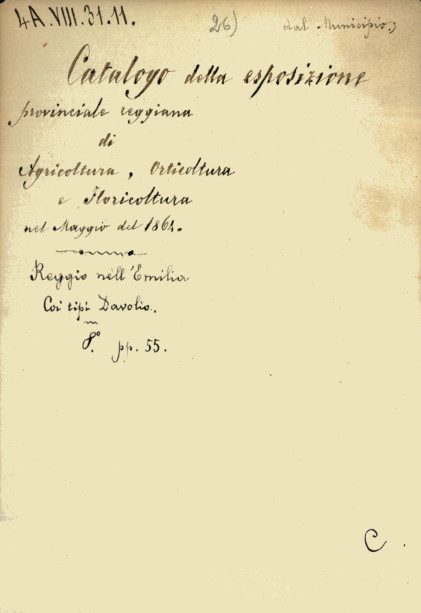 4A.VIII.31.11.
26)
dal Municipio.)
Catalogo della esposizione
provinciale reggiana
di
Agricoltura, Orticoltura
e Floricoltura
nel Maggio del 1864.
Reggio nell'Emilia
Coi tipi Davolio.
8.° pp. 55.
C.